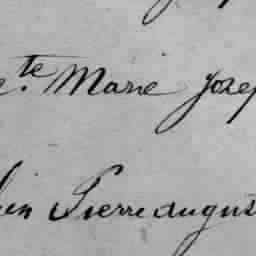 te. Marie Josep
Pierre Augus